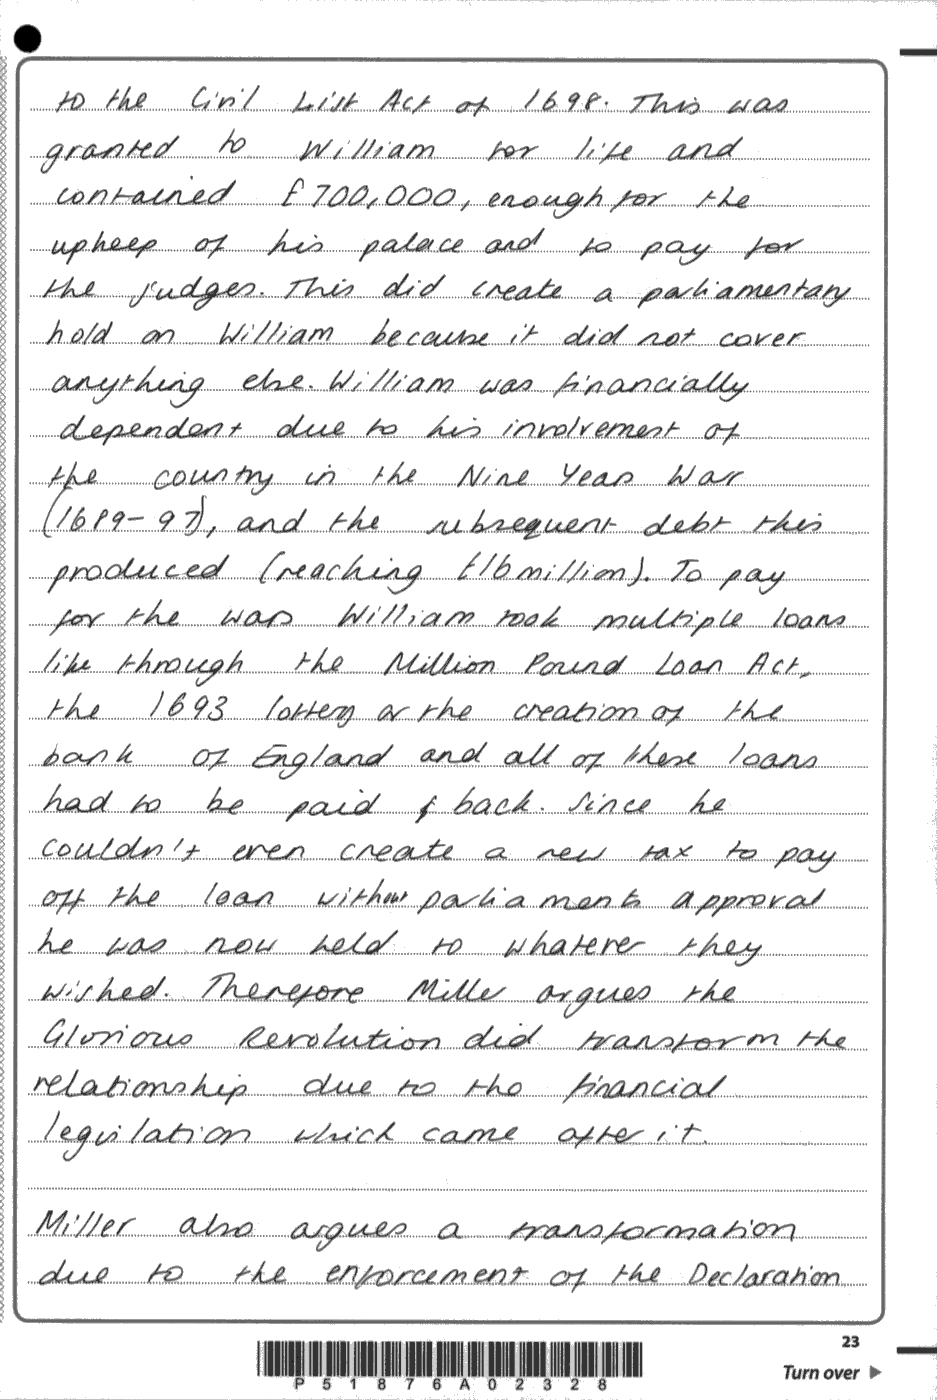 to the Civil List Act of 1698. This was
granted to William for life and
contained £700,000, enough for the
upkeep of his palace and to pay for
the judges. This did create a parliamentary
hold on William because it did not cover
anything else. William was financially
dependent due to his involvement of
the country in the Nine Years War
(1689-97), and the subsequent debt this
produced (reaching £16 million). To pay
for the wars William took multiple loans
like through the Million Pound Loan Act,
the 1693 lottery or the creation of the
bank of England and all of these loans
had to be paid back. Since he
couldn't even create a new tax to pay
off the loan without parliaments approval
he was now held to whatever they
wished. Therefore Miller argues the
Glorious Revolution did transform the
relationship due to the financial
legislation which came after it.
Miller also argues a transformation
due to the enforcement of the Declaration
23
Turn over
P51876A02328